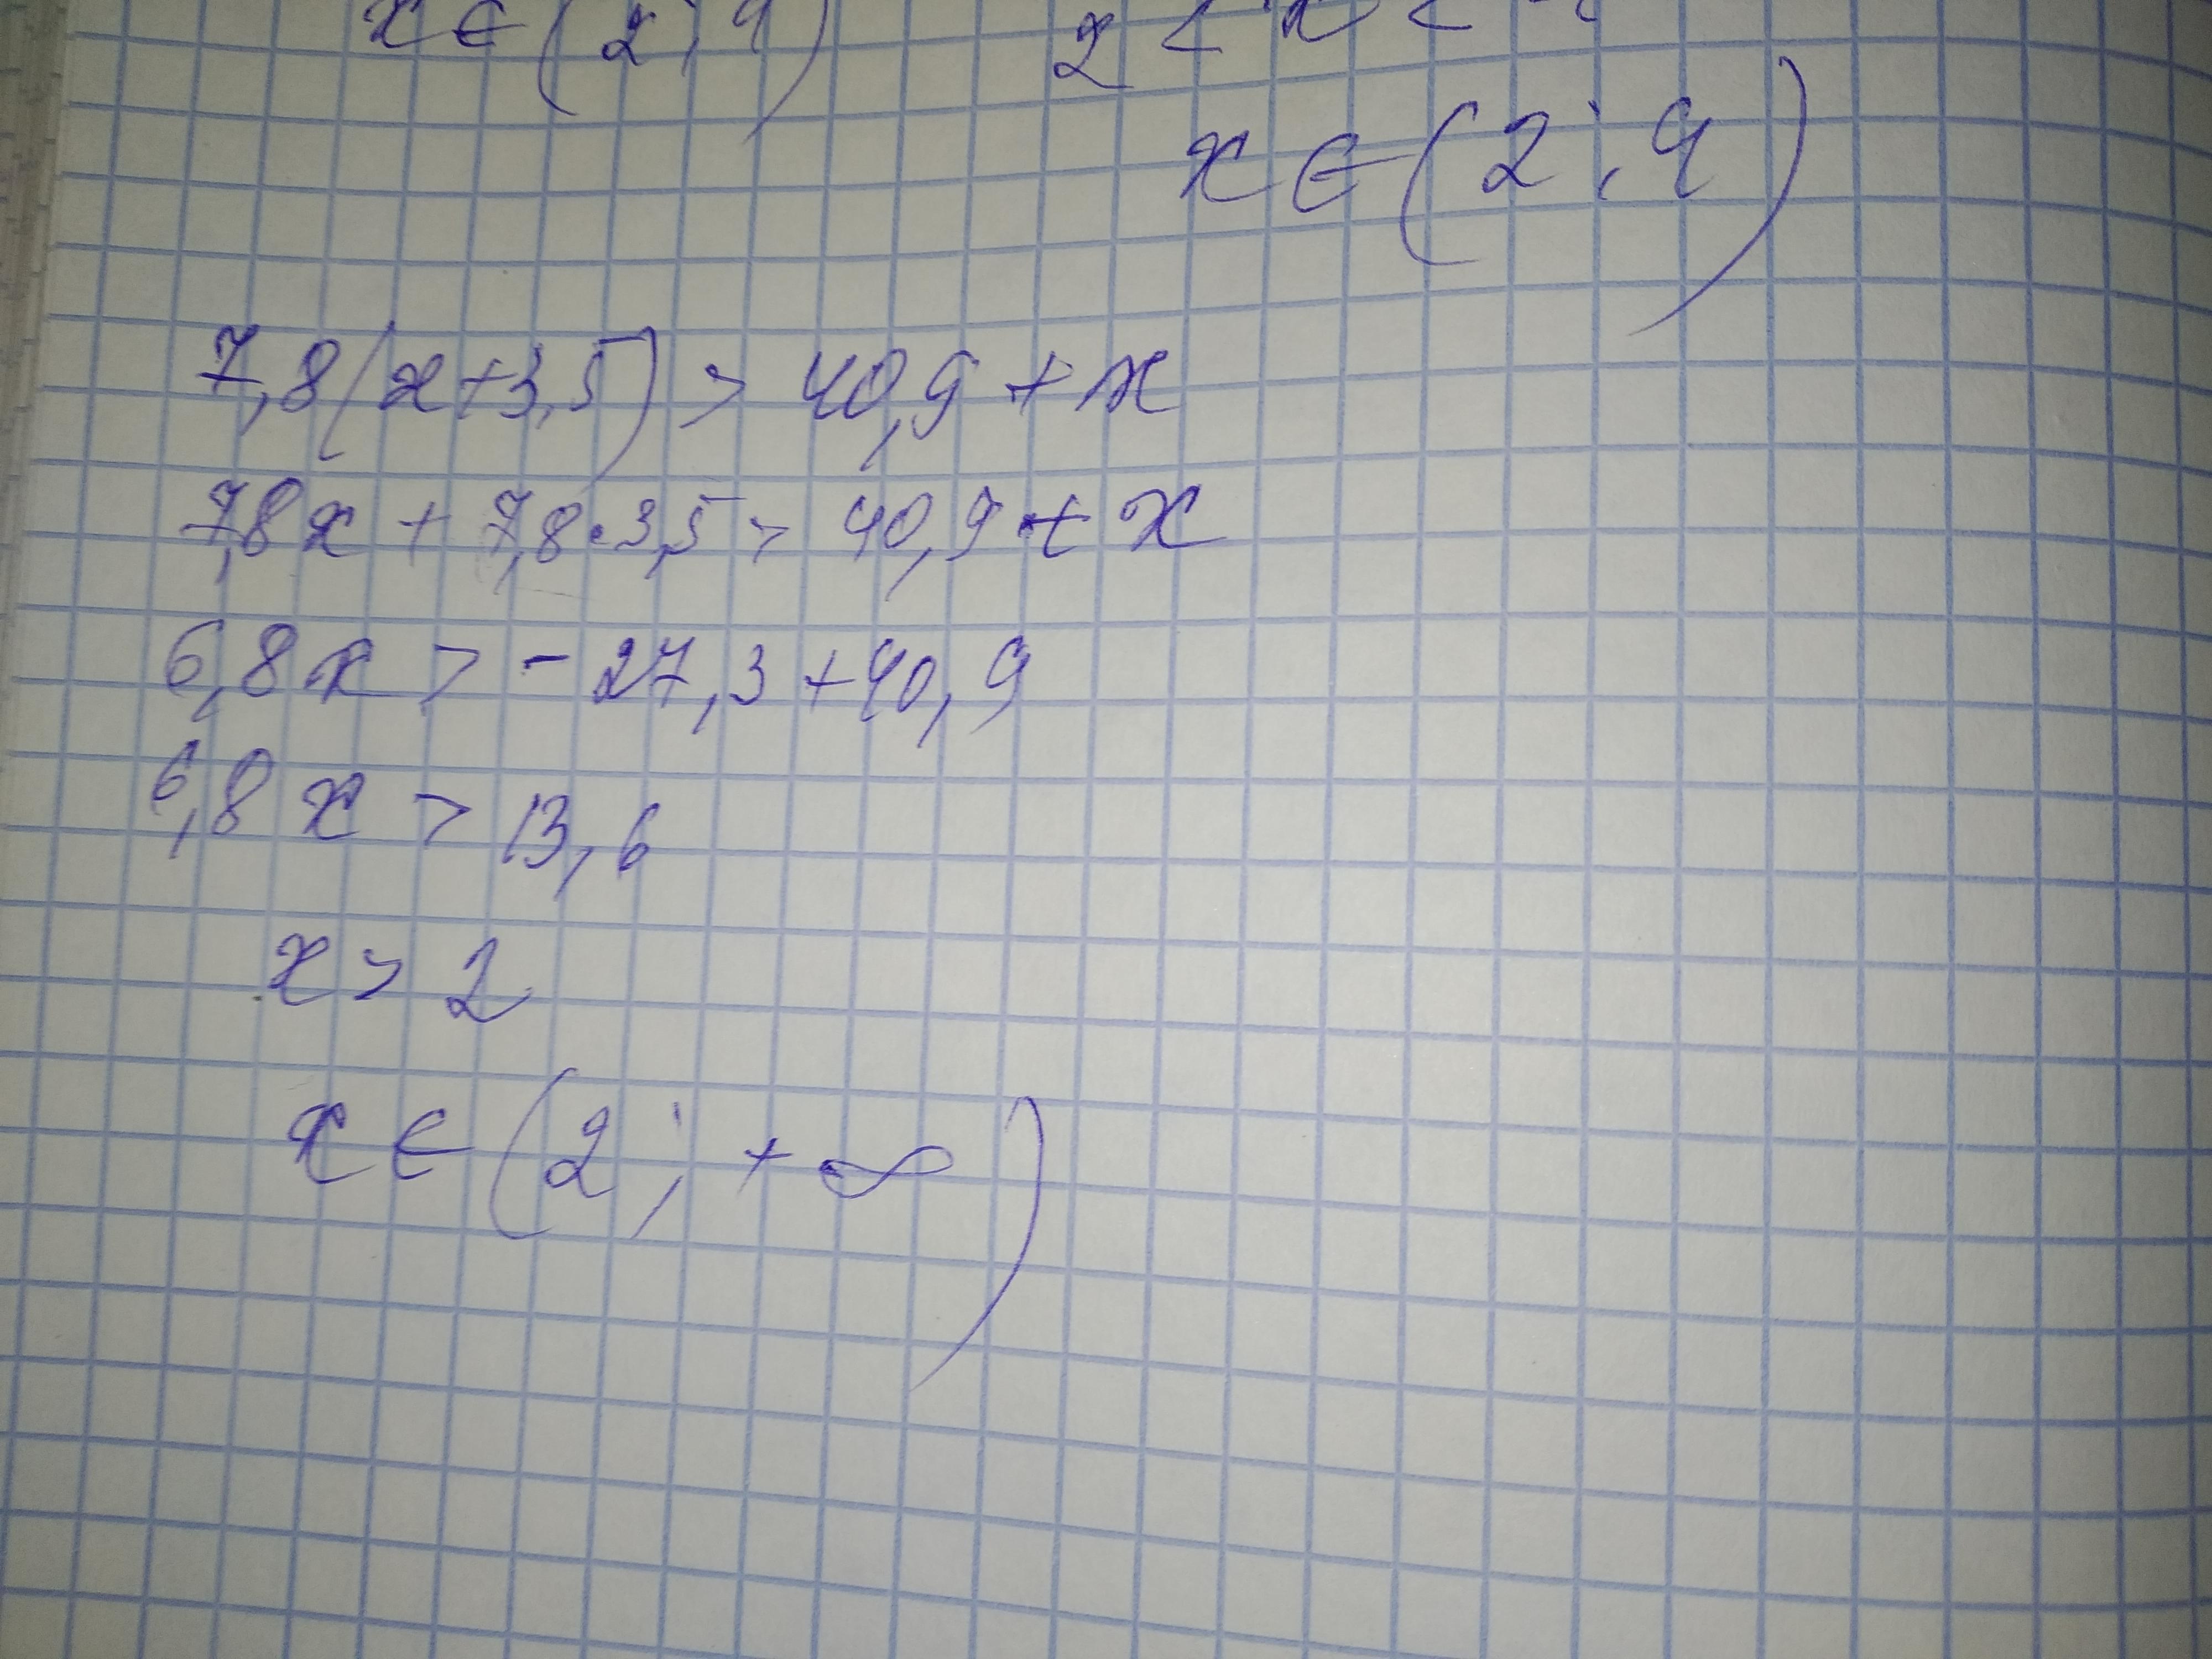 x ∈ (2; 4)
2 < x <
x ∈ (2; 4)
7,8(x+3,5) > 40,9 + x
7,8x + 7,8·3,5 > 40,9 + x
6,8x > -27,3 + 40,9
6,8x > 13,6
x > 2
x ∈ (2; +∞)